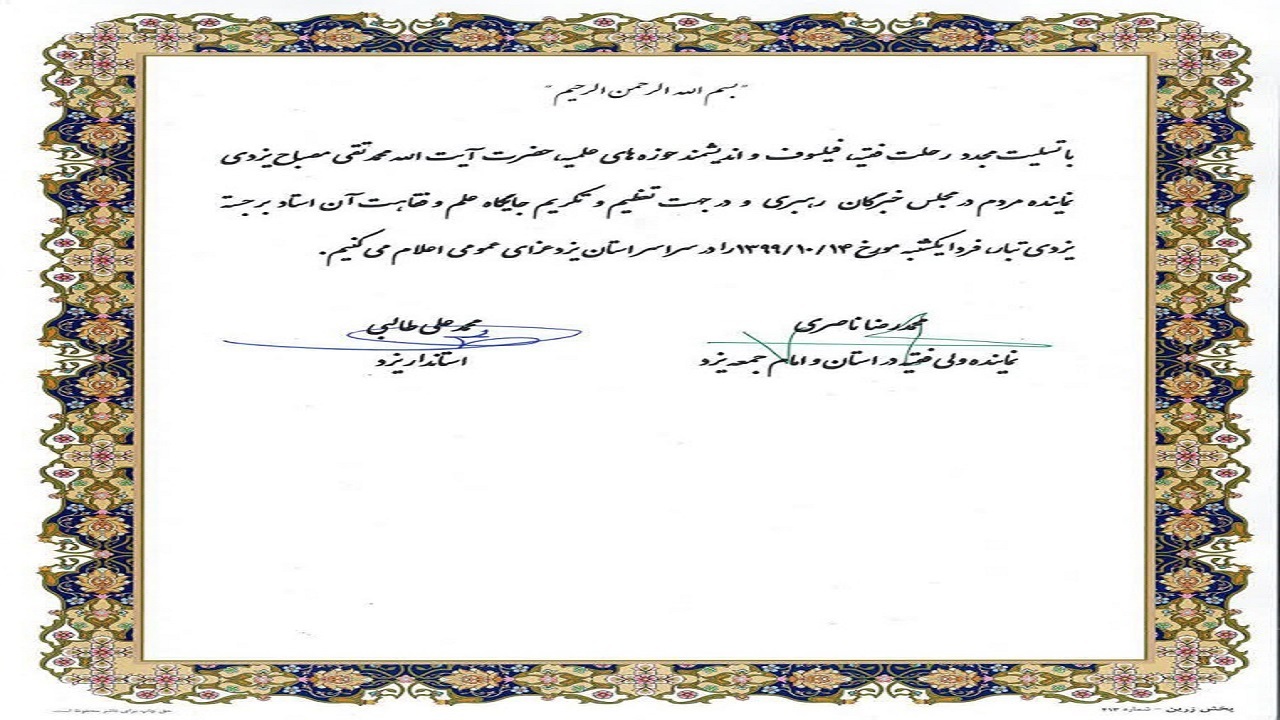 "بسم الله الرحمن الرحیم"
با تسلیت مجدد رحلت فقیه، فیلسوف و اندیشمند حوزه های علمیه، حضرت آیت الله محمد تقی مصباح یزدی
نماینده مردم در مجلس خبرگان رهبری و در جهت تعظیم و تکریم جایگاه علم و فقاهت آن استاد برجسته
یزدی تبار، فردا یکشنبه مورخ ۱۳۹۹/۱۰/۱۴ را در سراسر استان یزد عزای عمومی اعلام می کنیم.
محمدرضا ناصری
نماینده ولی فقیه در استان و امام جمعه یزد
محمد علی طالبی
استاندار یزد
پخش زرین - شماره ۲۱۳
حق چاپ برای ناشر محفوظ است